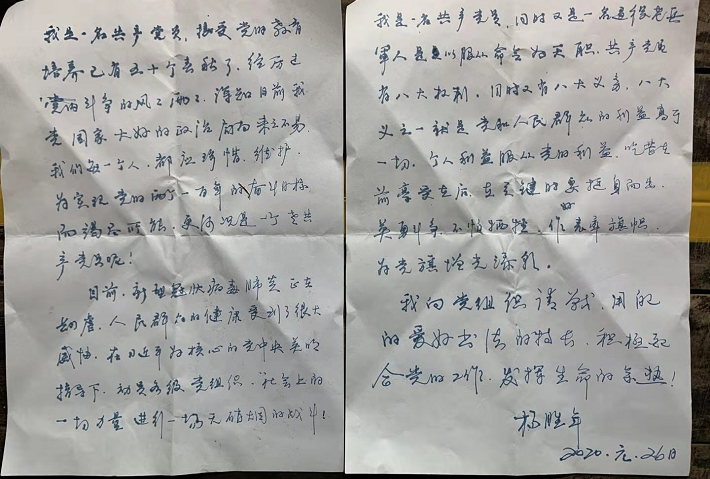 我是一名共产党员，接受党的教育
培养已有五十个春秋了，经历过
党内斗争的风风雨雨，深知目前我
党国家大好的政治局面来之不易，
我们每一个人，都应珍惜、维护，
为实现党的两个一百年的奋斗目标
而竭尽所能，更何况是一个老共
产党员呢！
目前，新型冠状病毒肺炎正在
肆虐，人民群众的健康受到了很大
威胁，在习近平为核心的党中央英明
指导下，动员各级党组织、社会上的
一切力量进行一场无硝烟的战斗！
我是一名共产党员，同时又是一名退役老兵
军人是以服从命令为天职，共产党员
有八大权利，同时又有八大义务，八大
义之一就是党和人民群众的利益高于
一切，个人利益服从党的利益，吃苦在
前享受在后，在关键的是挺身而出，
英勇斗争，不怕牺牲，作表率旗帜，
为党旗增光添彩。
我向党组织请战，用我
的爱好书法的特长，积极配
合党的工作，发挥生命的余热！
杨胜年
2020.元.26日